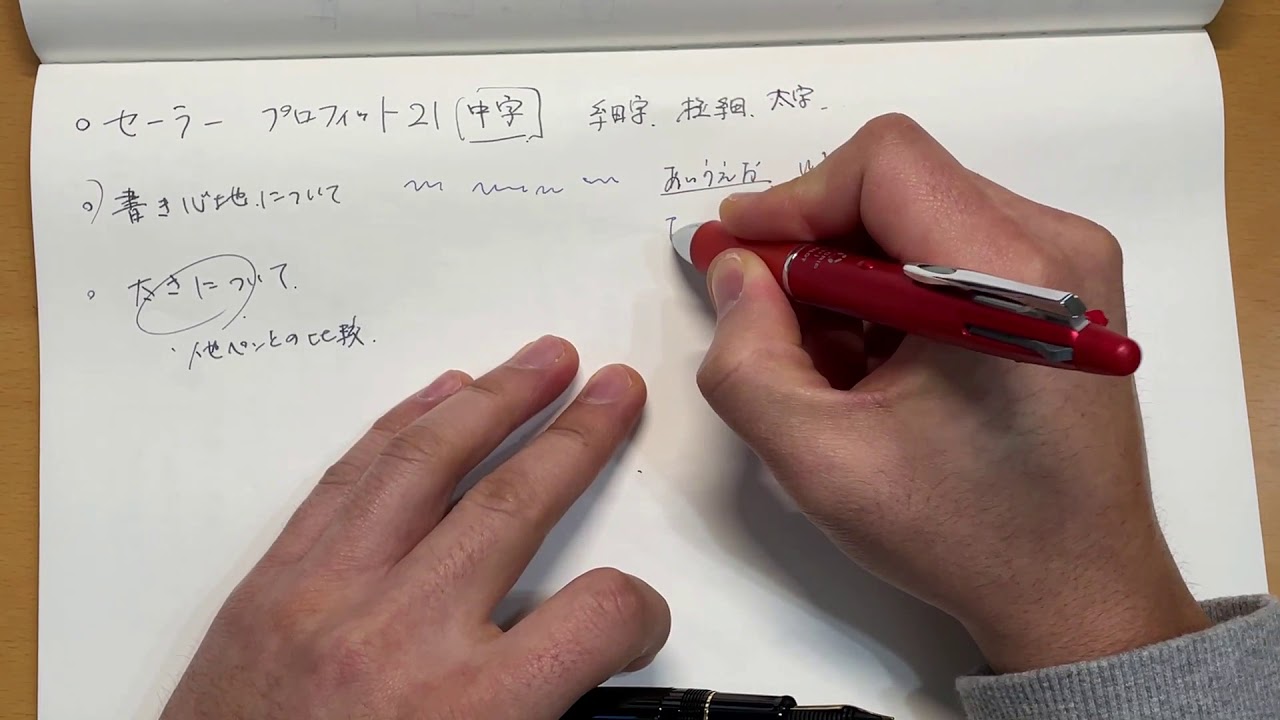 セーラー プロフィット21 中字 細字. 極細. 太字.
書き心地について あいうえお
大きについて.
他ペンとの比較.